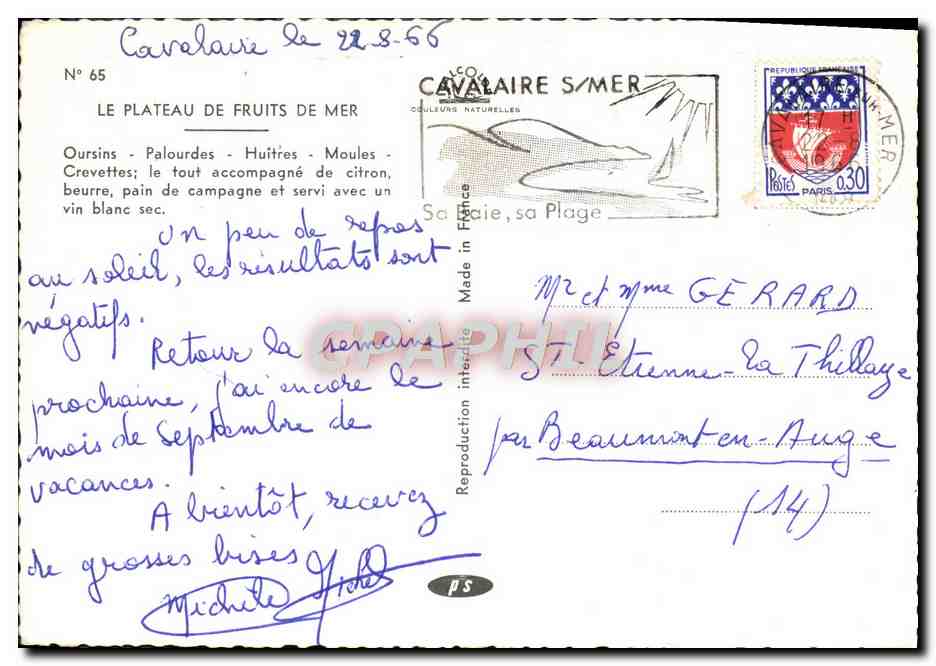 Cavalaire le 22-8-66
N° 65
LE PLATEAU DE FRUITS DE MER
Oursins - Palourdes - Huîtres - Moules -
Crevettes; le tout accompagné de citron,
beurre, pain de campagne et servi avec un
vin blanc sec.
Un peu de repos
au soleil, les résultats sont
négatifs.
Retour la semaine
prochaine, j'ai encore le
mois de Septembre de
vacances.
A bientôt, recevez
de grosses bises
Michèle Michel
COULEURS NATURELLES
CAVALAIRE S/MER
Sa Baie, sa Plage
REPUBLIQUE FRANÇAISE
POSTES
PARIS
0,30
SUR-MER
Reproduction interdite Made in France
CPAPHIL
ps
Mr et Mme GERARD
ST-Etienne-la Thillaye
par Beaumont en-Auge
(14)